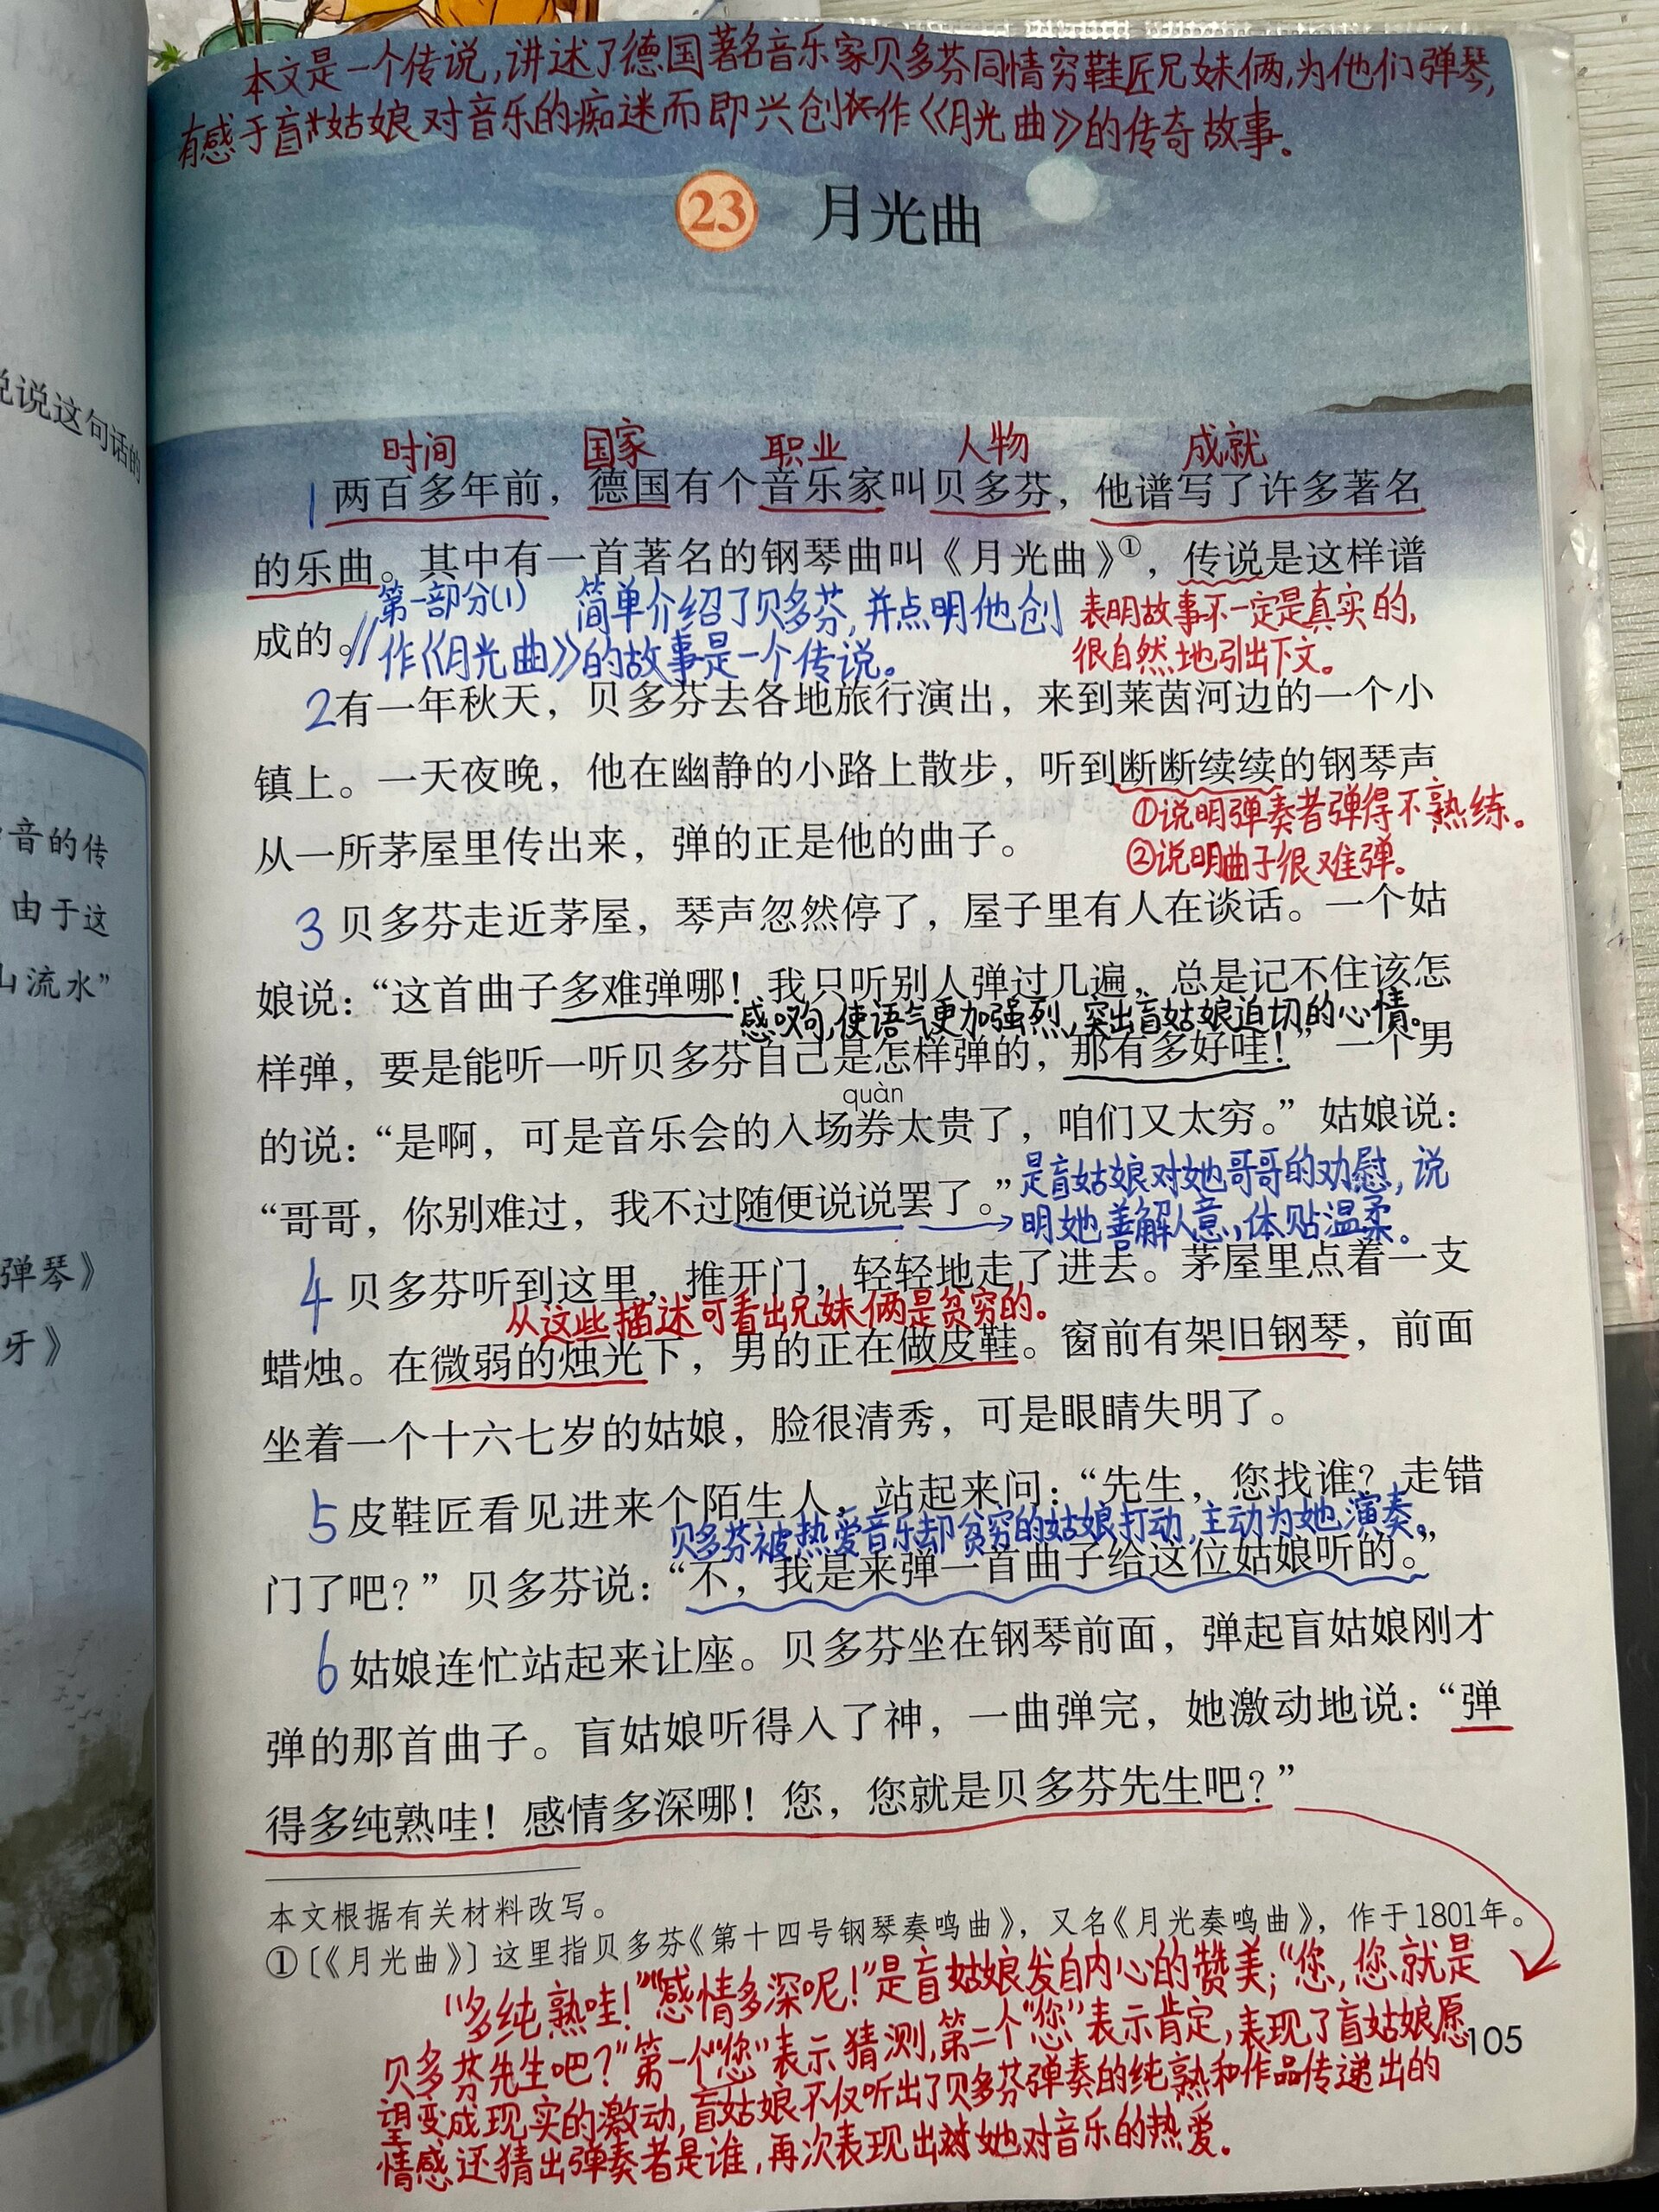 本文是一个传说,讲述了德国著名音乐家贝多芬同情穷鞋匠兄妹俩,为他们弹琴,
有感于盲姑娘对音乐的痴迷而即兴创作《月光曲》的传奇故事。
23 月光曲
说说这句话的
时间 国家 职业 人物 成就
1 两百多年前，德国有个音乐家叫贝多芬，他谱写了许多著名
的乐曲。其中有一首著名的钢琴曲叫《月光曲》①，传说是这样谱
成的。//
第一部分(1) 简单介绍了贝多芬,并点明他创
作《月光曲》的故事是一个传说。
表明故事不一定是真实的,
很自然地引出下文。
2 有一年秋天，贝多芬去各地旅行演出，来到莱茵河边的一个小
镇上。一天夜晚，他在幽静的小路上散步，听到断断续续的钢琴声
从一所茅屋里传出来，弹的正是他的曲子。
①说明弹奏者弹得不熟练。
②说明曲子很难弹。
音的传
由于这
山流水”
弹琴》
牙》
3 贝多芬走近茅屋，琴声忽然停了，屋子里有人在谈话。一个姑
娘说：“这首曲子多难弹哪！我只听别人弹过几遍，总是记不住该怎
感叹句,使语气更加强烈,突出盲姑娘迫切的心情。
样弹，要是能听一听贝多芬自己是怎样弹的，那有多好哇！”一个男
quàn
的说：“是啊，可是音乐会的入场券太贵了，咱们又太穷。”姑娘说：
“哥哥，你别难过，我不过随便说说罢了。”
是盲姑娘对她哥哥的劝慰,说
明她善解人意,体贴温柔。
4 贝多芬听到这里，推开门，轻轻地走了进去。茅屋里点着一支
从这些描述可看出兄妹俩是贫穷的。
蜡烛。在微弱的烛光下，男的正在做皮鞋。窗前有架旧钢琴，前面
坐着一个十六七岁的姑娘，脸很清秀，可是眼睛失明了。
5 皮鞋匠看见进来个陌生人，站起来问：“先生，您找谁？走错
贝多芬被热爱音乐却贫穷的姑娘打动,主动为她演奏。
门了吧？”贝多芬说：“不，我是来弹一首曲子给这位姑娘听的。”
6 姑娘连忙站起来让座。贝多芬坐在钢琴前面，弹起盲姑娘刚才
弹的那首曲子。盲姑娘听得入了神，一曲弹完，她激动地说：“弹
得多纯熟哇！感情多深哪！您，您就是贝多芬先生吧？”
本文根据有关材料改写。
①〔《月光曲》〕这里指贝多芬《第十四号钢琴奏鸣曲》，又名《月光奏鸣曲》，作于1801年。
“多纯熟哇!”“感情多深呢!”是盲姑娘发自内心的赞美;“您,您就是
贝多芬先生吧?”第一个“您”表示猜测,第二个“您”表示肯定,表现了盲姑娘愿
望变成现实的激动,盲姑娘不仅听出了贝多芬弹奏的纯熟和作品传递出的
情感还猜出弹奏者是谁,再次表现出她对音乐的热爱。
105